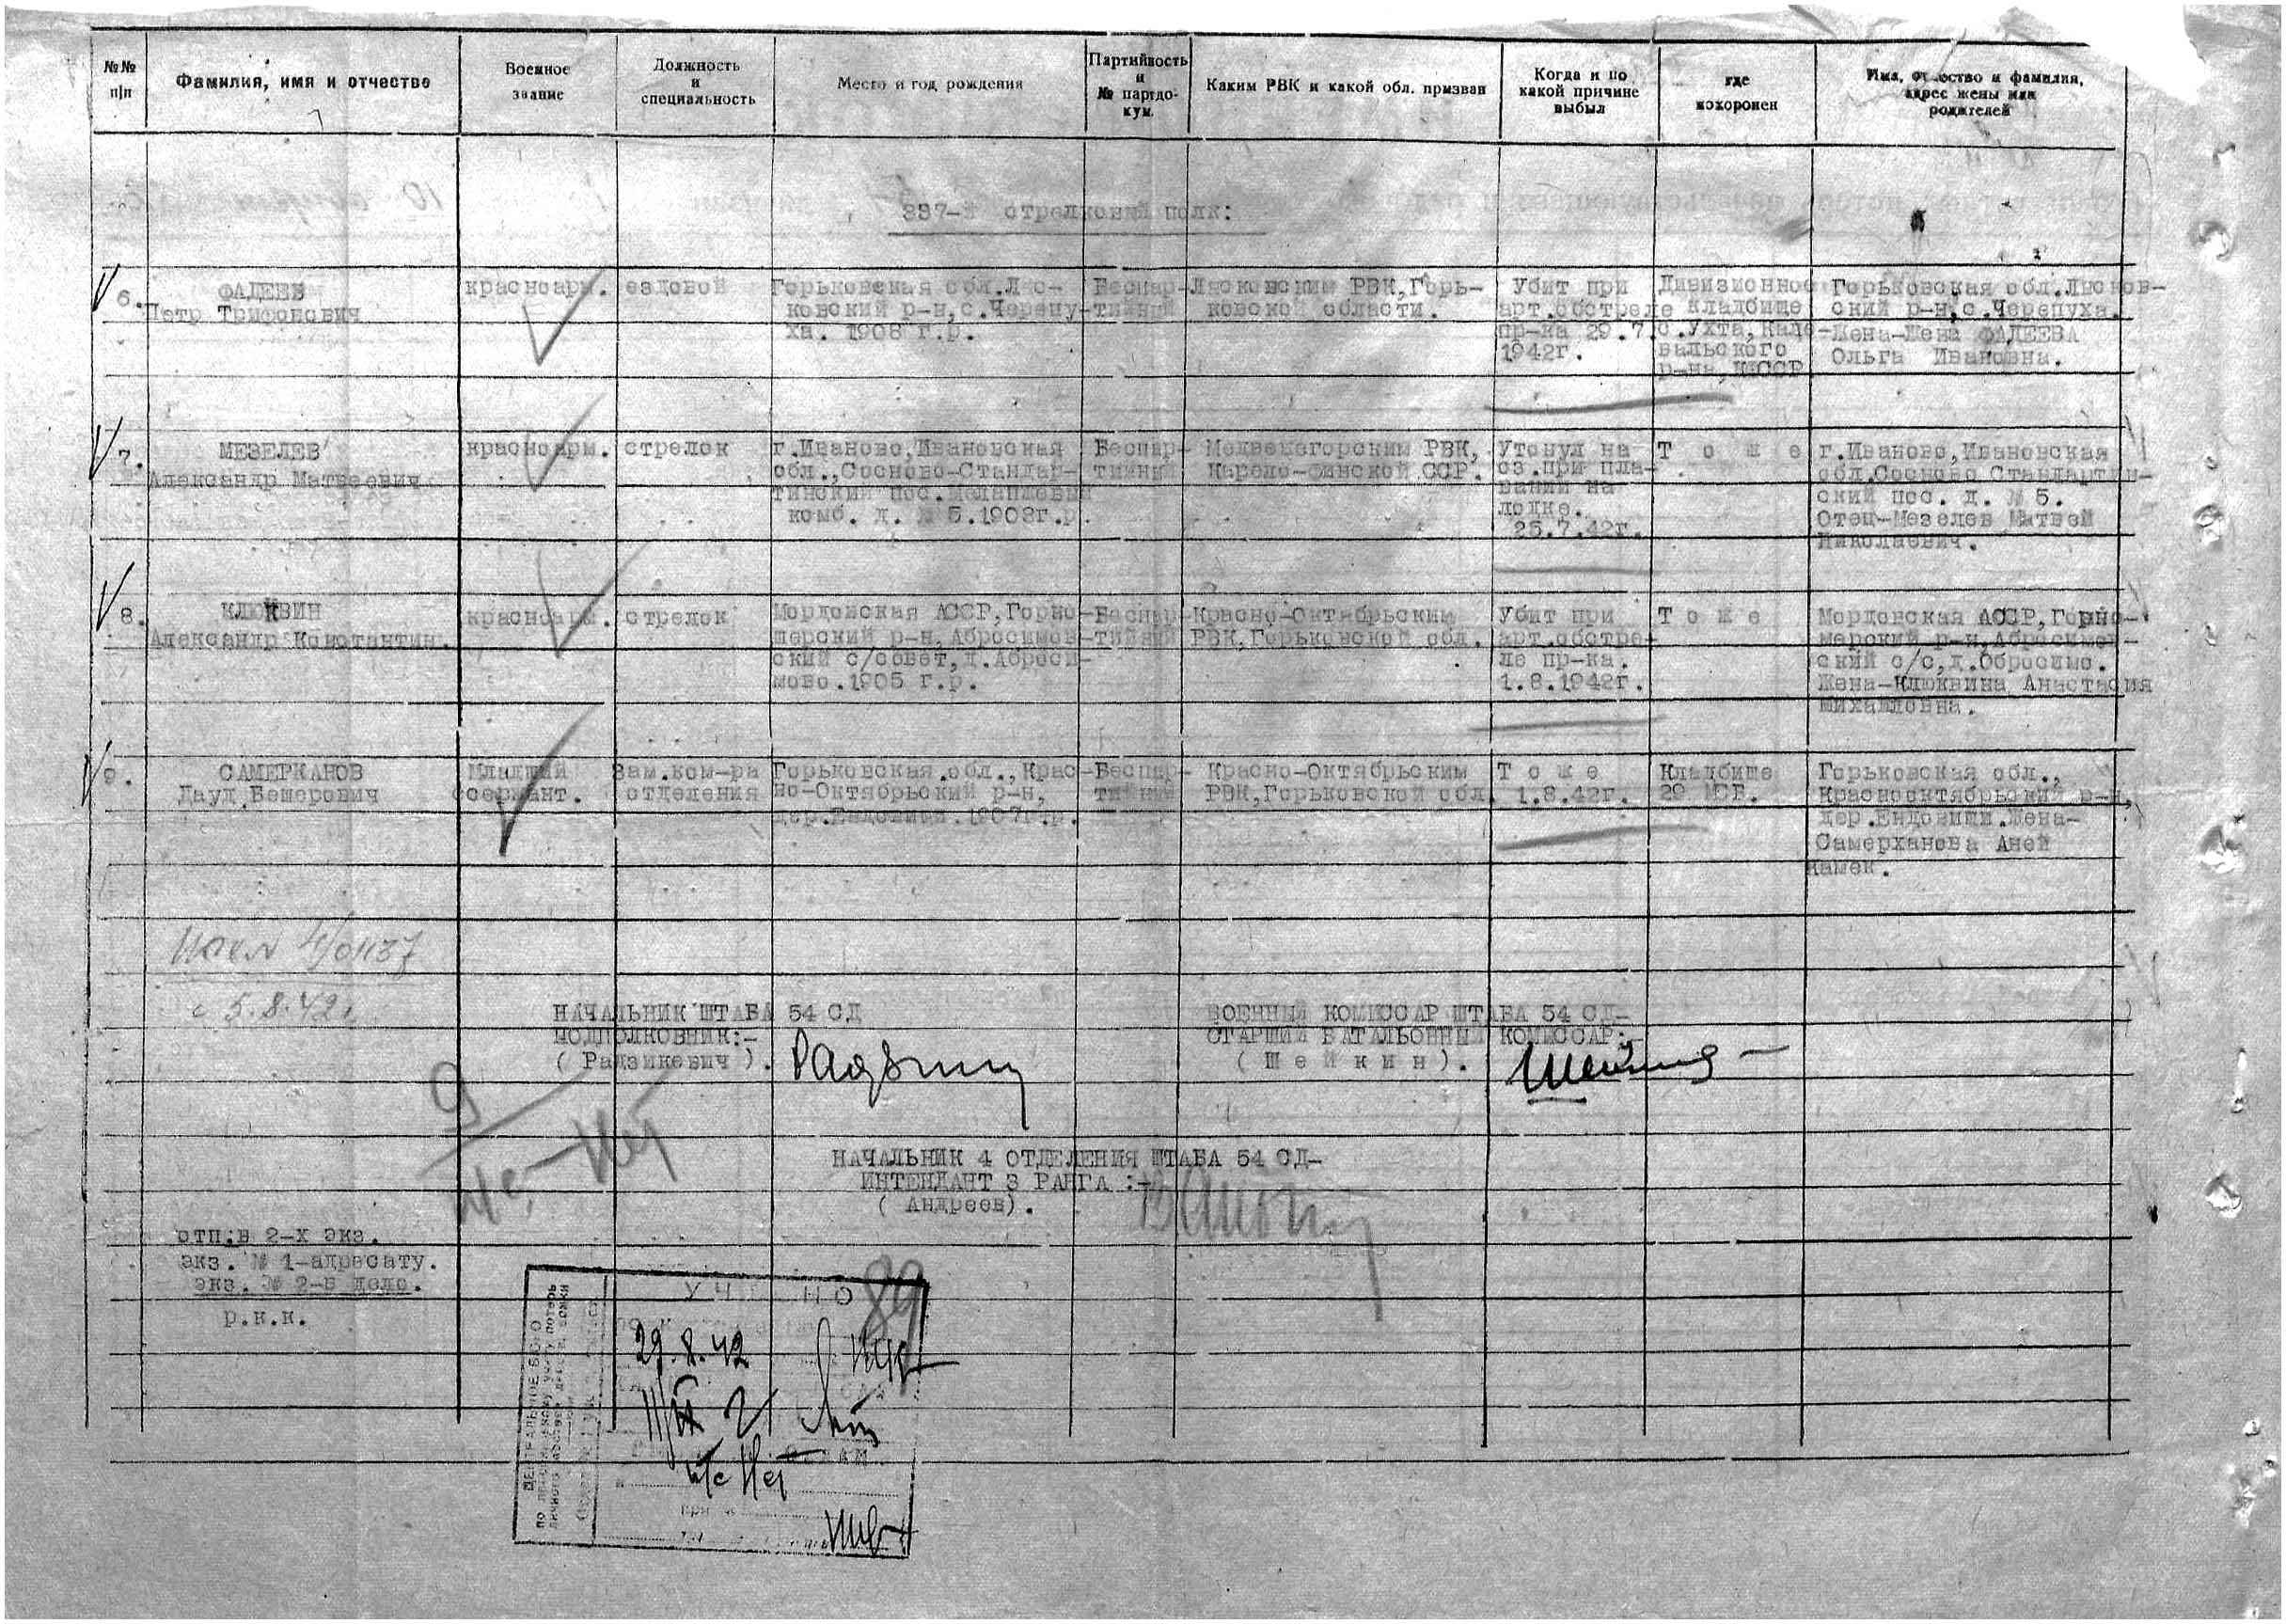 №№ п/п
Фамилия, имя и отчество
Военное звание
Должность и специальность
Место и год рождения
Партийность и № партдокум.
Каким РВК и какой обл. призван
Когда и по какой причине выбыл
где похоронен
Имя, отчество и фамилия, адрес жены или родителей
337-й стрелковый полк:
6.
ФАДЕЕВ
Петр Трифонович
красноарм.
ездовой
Горьковская обл.Лыс-
ковский р-н,с.Черепу-
ха. 1908 г.р.
Беспар-
тийный
Лысковским РВК,Горь-
ковской области.
Убит при
арт.обстреле
пр-ка 29.7.
1942г.
Дивизионное
кладбище
с.Ухта, Кале-
вальского
р-на, КФССР
Горьковская обл.Лысков-
ский р-н,с.Черепуха.
Жена-Жена ФАДЕЕВА
Ольга Ивановна.
7.
МЕЗЕЛЕВ
Александр Матвеевич
красноарм.
стрелок
г.Иваново,Ивановская
обл.,Сосново-Стандар-
тинский пос.Меланжевый
комб. д. № 5.1908г.р.
Беспар-
тийный
Медвежегорским РВК,
Карело-Финской ССР.
Утонул на
оз.при пла-
вании на
лодке.
25.7.42г.
Т о ж е
г.Иваново,Ивановская
обл.Сосново Стандартин-
ский пос. д. № 5.
Отец-Мезелев Матвей
Николаевич.
8.
КЛЮКВИН
Александр Константин.
красноарм.
стрелок
Мордовская АССР,Горно-
шерский р-н,Абросимов-
ский с/совет,д.Аброси-
мово.1905 г.р.
Беспар-
тийный
Красно-Октябрьским
РВК,Горьковской обл.
Убит при
арт.обстре-
ле пр-ка.
1.8.1942г.
Т о ж е
Мордовская АССР,Горно-
мерский р-н,Абросимов-
ский с/с,д.Обросимо.
Жена-Клюквина Анастасия
Михайловна.
9.
САМЕРКАНОВ
Дауд Бешерович
Младший
сержант.
Зам.ком-ра
отделения
Горьковская.обл.,Крас-
но-Октябрьский р-н,
дер.Ендовищи.1907г.р.
Беспар-
тийный
Красно-Октябрьским
РВК,Горьковской обл.
Т о ж е
1.8.42г.
Кладбище
29 МСБ.
Горьковская обл.,
Краснооктябрьский р-н,
дер.Ендовищи.Жена-
Самерханова Аней
Камек.
с 5.8.42г
НАЧАЛЬНИК ШТАБА 54 СД
ПОДПОЛКОВНИК:-
( Радзикевич ).
ВОЕННЫЙ КОМИССАР ШТАБА 54 СД-
СТАРШИЙ БАТАЛЬОННЫЙ КОМИССАР:-
( Ш е й к и н ).
9
НАЧАЛЬНИК 4 ОТДЕЛЕНИЯ ШТАБА 54 СД-
ИНТЕНДАНТ 3 РАНГА :-
( Андреев).
отп.в 2-х экз.
экз. № 1-адресату.
экз. № 2-в дело.
р.к.к.
89
ЦЕНТРАЛЬНОЕ БЮРО
по персональному учету потерь
личного состава действ. армии
29.8.42